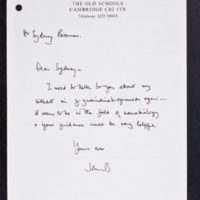 THE OLD SCHOOLS
CAMBRIDGE CB2 1TN
Telephone: 0223
Dr Sydney Brenner.
Dear Sydney —
I need to talk to you about my
again —
it seems to be in the field of neurobiology
& your guidance would be very helpful.
Yours ever